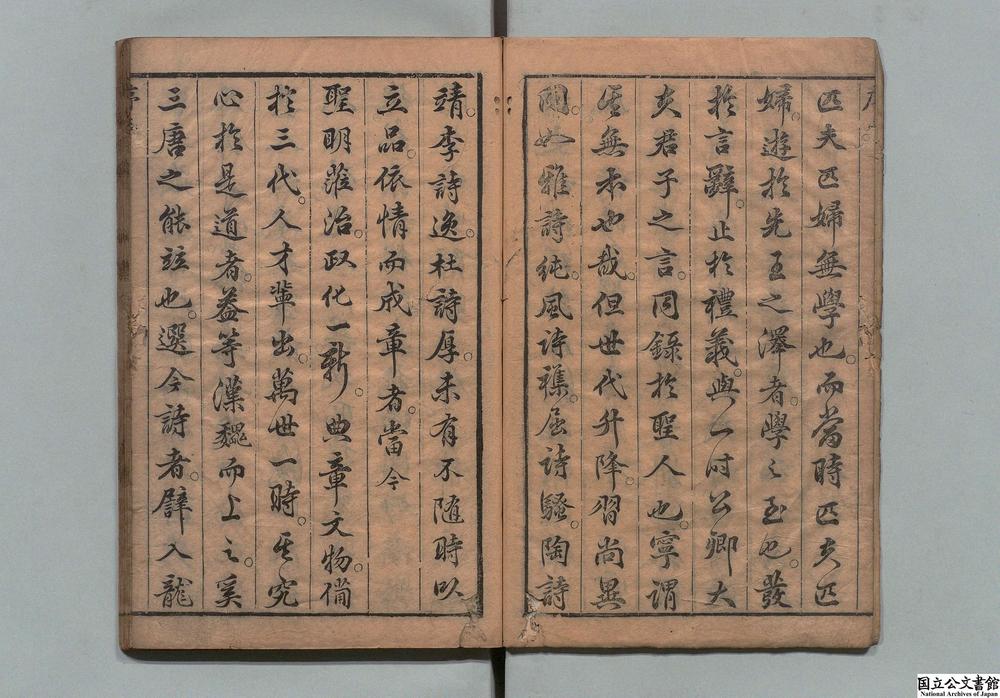 匹夫匹婦無學也而當時匹夫匹
婦遊於先王之澤者學之至也發
於言辭止於禮義與一时公卿大
夫君子之言同錄於聖人也寧謂
其無本也哉但世代升降習尚異
關如雅詩純風詩襍屈詩騷陶詩
靖李詩逸杜詩厚未有不隨時以
立品依情而成章者當今
聖明蒞治政化一新典章文物備
於三代人才輩出萬世一時其究
心於是道者盖等漢魏而上之奚
三唐之能竝也選今詩者譬入龍
序
国立公文書館
National Archives of Japan